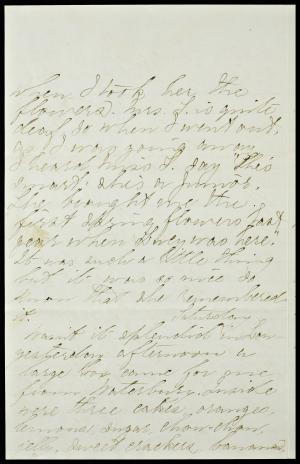 when I took her the
flowers. Mrs. L. is quite
deaf, so when I went out,
as I was going away
I heard Miss L. say "She's
smart, she's a junior.
She brought me the
first spring flowers last
year when was here."
It was such a little thing
but it was so nice to
know that she remembered
it.
Saturday
Wasn't it splendid
yesterday afternoon a
large box came for me
from Waterbury, inside
were three cakes, oranges,
lemons, sugar, chow-chow,
jelly, sweet crackers, bananas,